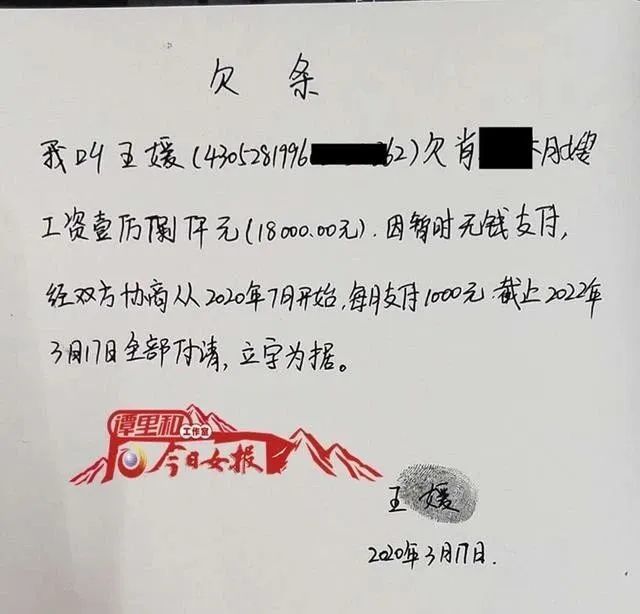 欠条
我叫王媛(4305281996 362)欠肖 月嫂
工资壹万捌仟元(18000.00元).因暂时无钱支付,
经双方协商从2020年7月开始,每月支付1000元.截止2022年
3月17日全部付清,立字为据。
谭里和
工作室
今日女报
王媛
2020年3月17日.